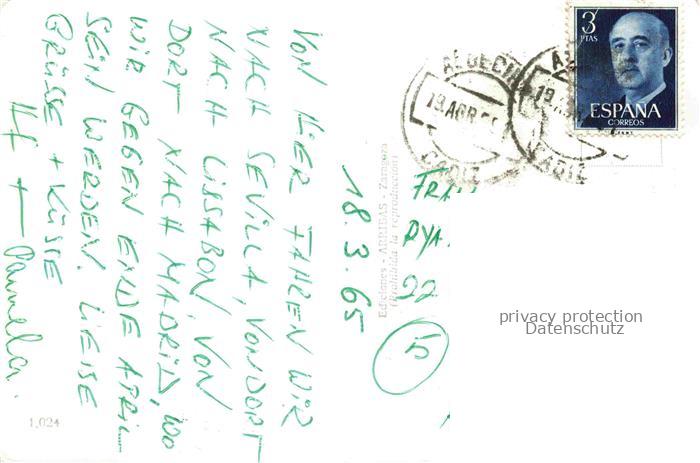 VON HIER FAHREN WIR
NACH SEVILLA, VON DORT
NACH LISSABON, VON
DORT NACH MADRID, WO
WIR GEGEN ENDE APRIL
SEIN WERDEN. LIEBE
GRÜSSE + KÜSSE
+ Pamela.
18.3.65
1.024
Ediciones - ARRIBAS - Zaragoza
(Prohibida la reproducción)
FRA
22
5
ALGECIRAS
19.ABR.65
CADIZ
19.
CADIZ
3
PTAS
ESPAÑA
CORREOS
privacy protection
Datenschutz